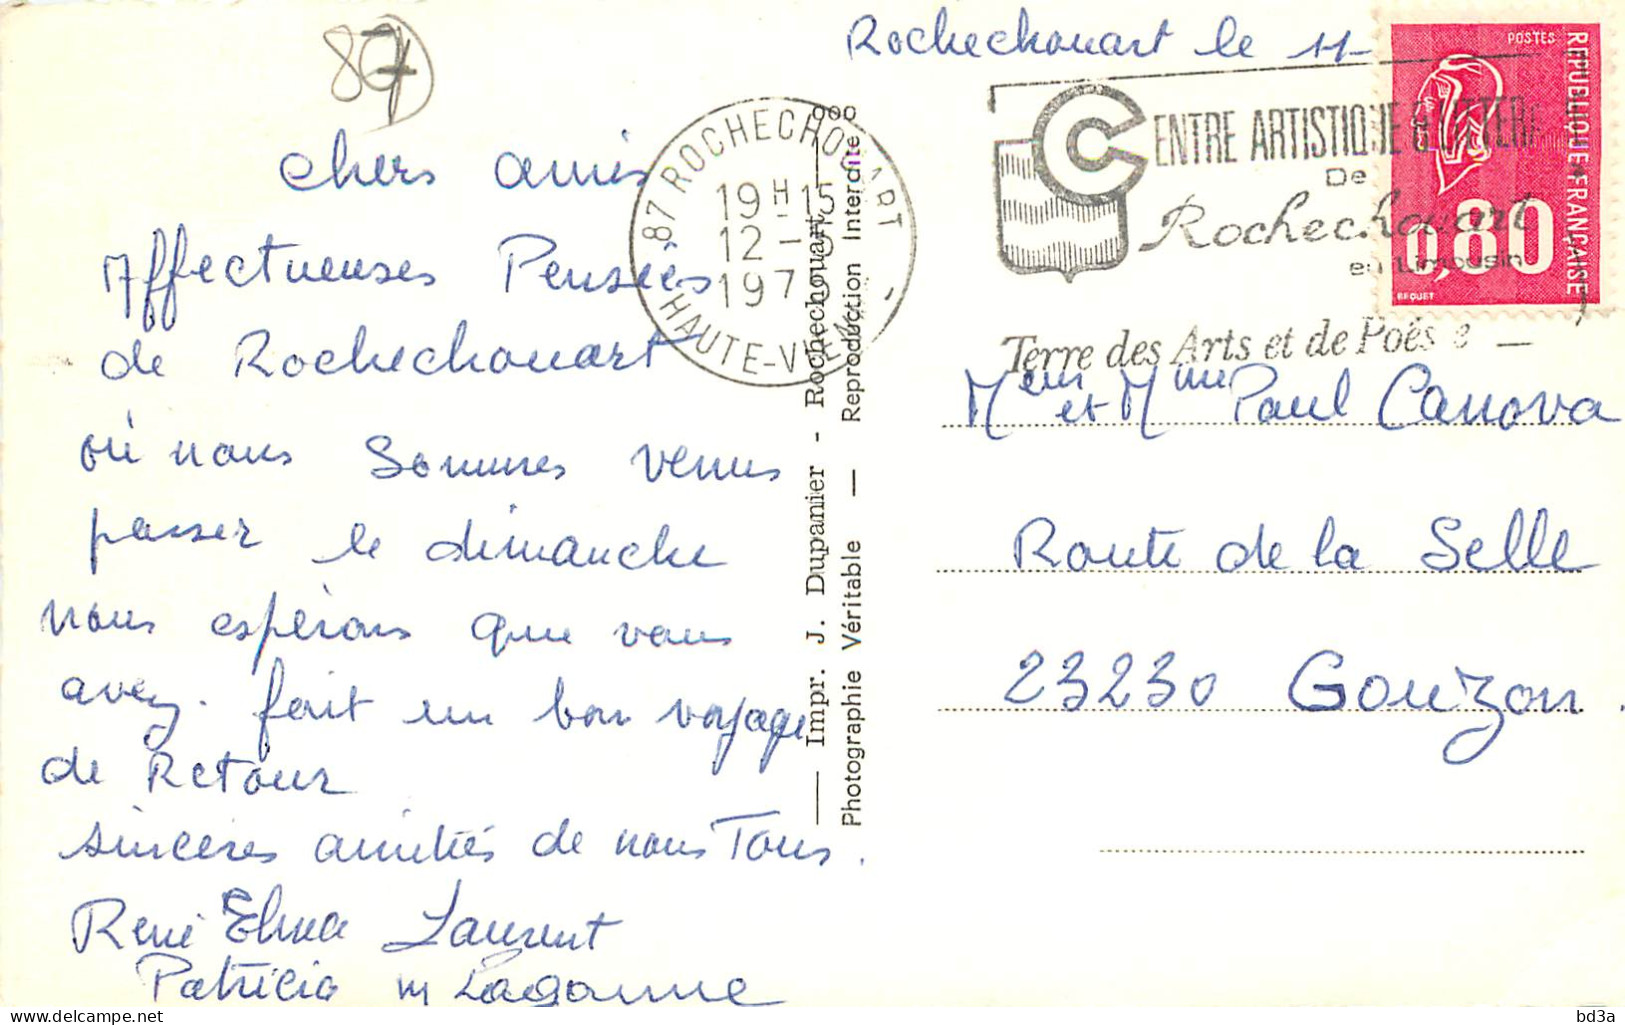 87
Rochechouart le 11-
chers amis
Affectueuses Pensées
de Rochechouart
où nous sommes venus
passer le dimanche
nous espérons que vous
avez. fait un bon voyage
de Retour
sincères amitiés de nous Tous.
René Elma Laurent
Patricia
87 ROCHECHOUART
19 H 15
12 -
197
HAUTE-VIENNE
ooo
— Impr. J. Dupanier - Rochechouart —
Photographie Véritable — Reproduction Interdite
CENTRE ARTISTIQUE & LITTERA
De
Rochechouart
en Limousin
Terre des Arts et de Poésie
POSTES
REPUBLIQUE FRANÇAISE
0,80
BEQUET
Meur et Mme Paul Canova
Route de la Selle
23230 Gouzon.
bd3a